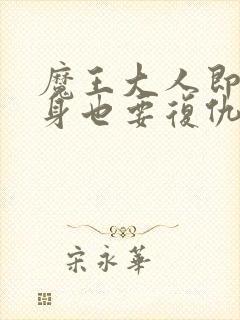 魔王大人即
身也要復仇
宋永華